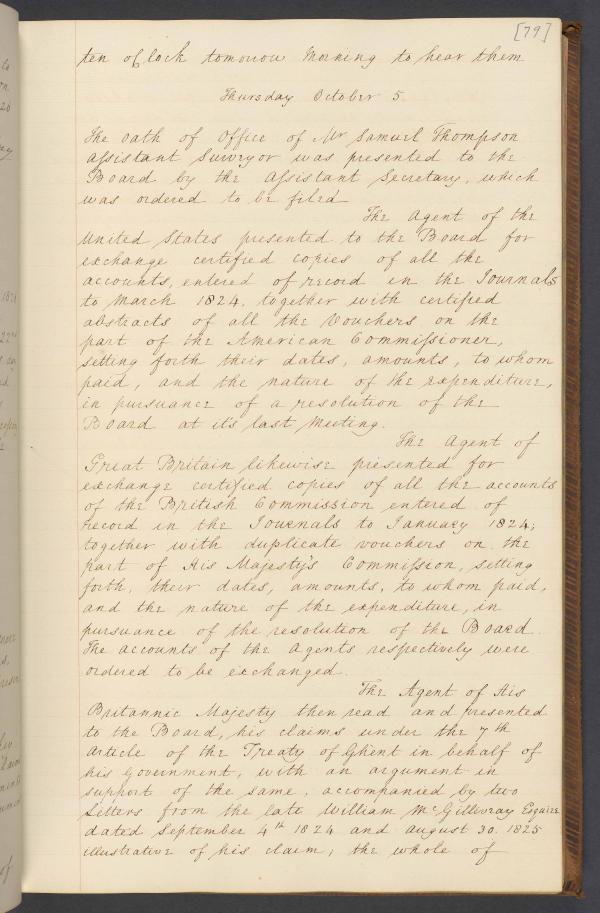 [79]
ten oClock tomorrow Morning to hear them
Thursday October 5
The Oath of Office of Mr Samuel Thompson
Assistant Surveyor was presented to the
Board by the Assistant Secretary, which
was ordered to be filed
The Agent of the
United States presented to the Board for
exchange certified copies of all the
accounts, entered of record in the Journals
to March 1824, together with certified
abstracts of all the Vouchers on the
part of the American Commissioner,
setting forth their dates, amounts, to whom
paid, and the nature of the expenditure,
in pursuance of a resolution of the
Board at it's last Meeting.
The Agent of
Great Britain likewise presented for
exchange certified copies of all the accounts
of the British Commission entered of
record in the Journals to January 1824;
together with duplicate vouchers on the
part of His Majesty's Commission, setting
forth, their dates, amounts, to whom paid,
and the nature of the expenditure, in
pursuance of the resolution of the Board.
The accounts of the Agents respectively were
ordered to be exchanged.
The Agent of His
Britannic Majesty then read and presented
to the Board, his claims under the 7th
Article of the Treaty of Ghent in behalf of
his government, with an argument in
support of the same, accompanied by two
Letters from the late William McGillivray Esquire
dated September 4th 1824 and August 30. 1825
illustrative of his claim, the whole of